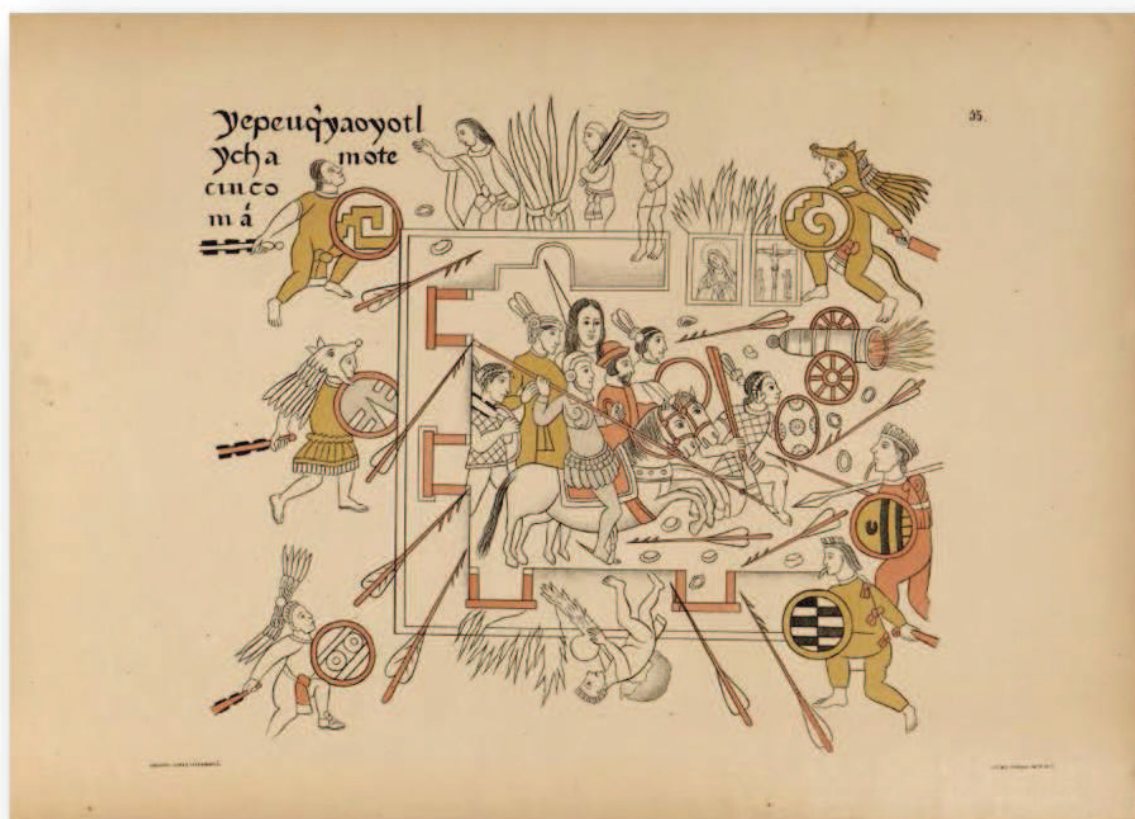 yepeuq̃yaoyotl
ycha mote
cuico
mã
35.